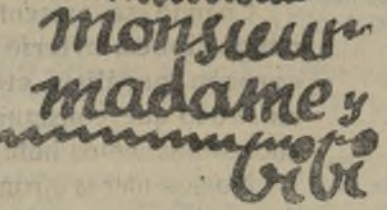 monsieur
madame, y
bibi